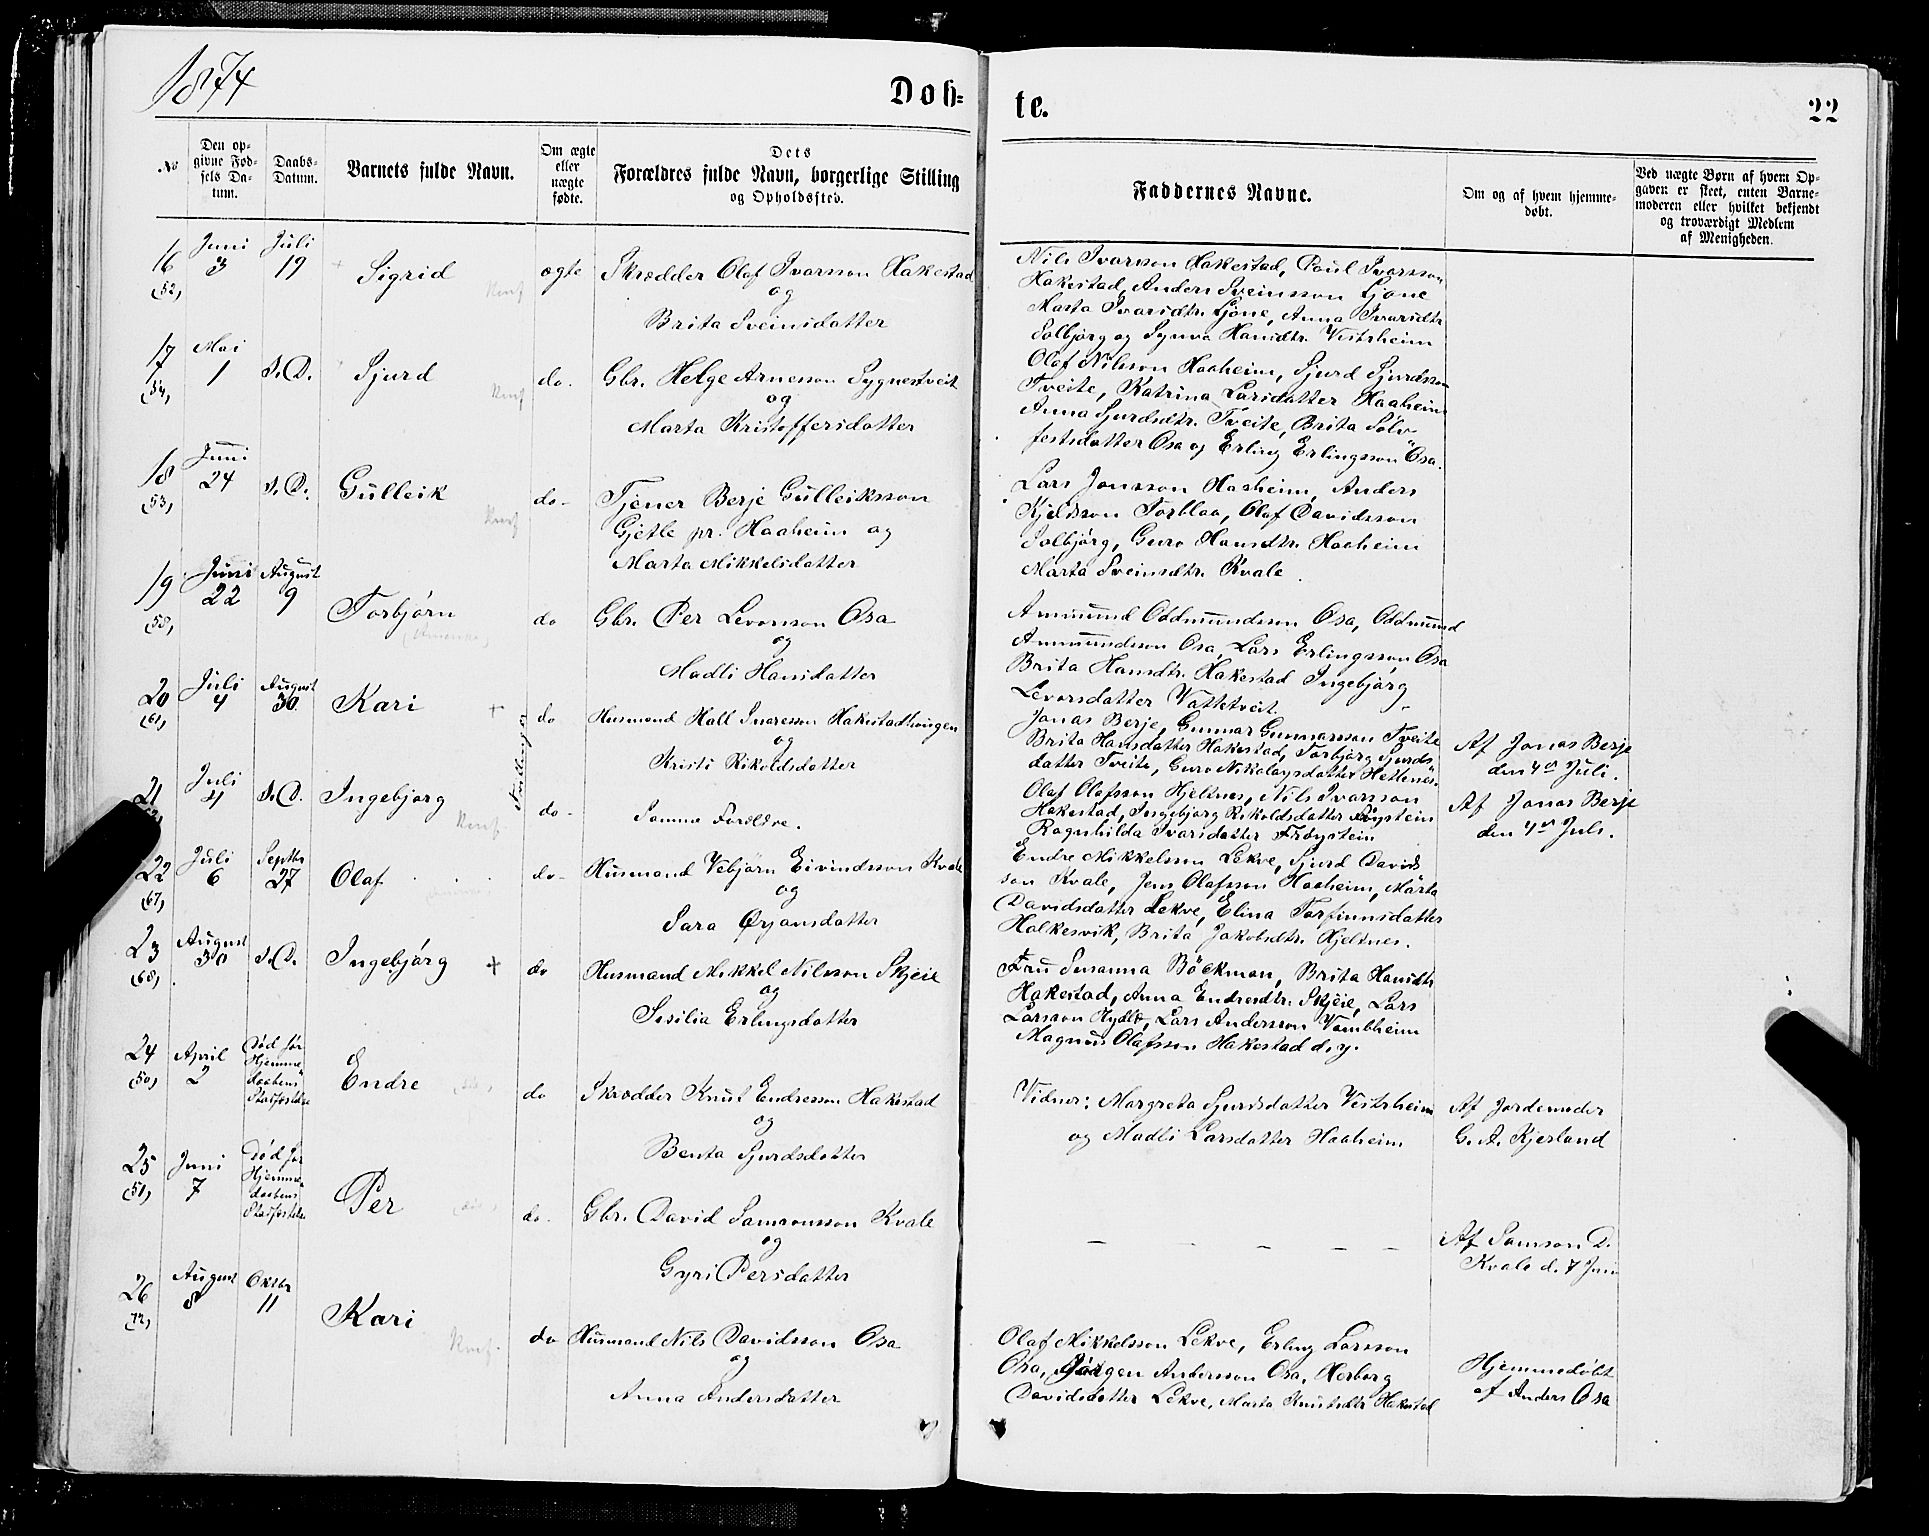 1874
Døb=
te.
22
No
Den op-
givne Fød-
sels Da-
tum.
Daabs-
Datum.
Barnets fulde Navn.
Om ægte
eller
uægte
fødte.
Dets
Forældres fulde Navn, borgerlige Stilling
og Opholdssted.
Faddernes Navne.
Om og af hvem hjemme-
døbt.
Ved uægte Børn af hvem Op-
gaven er skeet, enten Barne-
moderen eller hvilket bekjendt
og troværdigt Medlem
af Menigheden.
16
(52)
Juni
3
Juli
19
Sigrid
Konf
ægte
Skrædder Olaf Ivarsson Hakestad
og
Brita Sveinsdatter
Nils Ivarsson Hakestad, Poul Ivarsson
Hakestad, Anders Sveinsson Ljone
Marta Ivarsdtr. Ljone, Anna Ivarsdtr
Solbjørg og Synva Hansdtr. Vestrheim
17
(54)
Mai
1
s. D.
Sjurd
Konf
do.
Gbr. Helge Arnesson Sygnestveit
og
Marta Kristoffersdatter
Olaf Nilsson Haaheim, Sjurd Sjurdsson
Tveite, Katrina Larsdatter Haaheim
Anna Sjurdsdtr. Tveite, Brita Sølv-
festsdatter Osa og Erling Erlingsson Osa.
18
(53)
Juni
24
s. D.
Gulleik
Konf
do-
Tjener Berje Gulleiksson
Gjetle pr. Haaheim og
Marta Mikkelsdatter
Lars Jonsson Haaheim, Anders
Kjeldsson Torblaa, Olaf Davidsson
Solbjørg, Guro Hansdtr. Haaheim
Marta Sveinsdtr. Kvale.
19
(55)
Juni
22
August
9
Torbjørn
(Amerika)
do
Gbr. Per Levorsson Osa
og
Madli Hansdatter
Ammund Oddmundsson Osa, Oddmund
Ammundsson Osa, Lars Erlingsson Osa
Brita Hansdtr. Hakestad Ingebjørg
Levorsdatter Vattetveit.
20
(61)
Juli
4
August
30
Kari
+
Tvillinger
do
Husmand Hall Ivarsson Hakestadtvingen
og
Kristi Rikoldsdatter
Jonas Berje, Gunnar Gunnarsson Tveite
Brita Hansdatter Hakestad, Torbjørg Sjurds-
datter Tveite, Guro Nikolaysdatter Hetlenes.
Af Jonas Berje
den 4de Juli.
21
Juli
4
s. D.
Ingebjørg
Konf
do-
Samme Forældre.
Olaf Olafsson Hjeltnes, Nils Ivarsson
Hakestad, Ingebjørg Rikoldsdatter Frøystein
Ragnhilda Ivarsdatter Frøystein
Af Jonas Berje
den 4de Juli.
22
(67)
Juli
6
Septbr
27
Olaf
do-
Husmand Vebjørn Eivindsson Kvale
og
Sara Ørjansdatter
Endre Mikkelsson Lekve, Sjurd Davids
son Kvale, Jens Olafsson Haaheim, Marta
Davidsdatter Lekve, Elina Torfinnsdatter
Halkesvik, Brita Jakobsdtr. Hjeltnes.
23
(68)
August
30
s. D.
Ingebjørg
+
do
Husmand Mikkel Nilsson Skjeie
og
Sisilia Erlingsdatter
Fru Susanna Böckman, Brita Hansdtr
Hakestad, Anna Endresdtr. Skjeie, Lars
Larsson Hydle, Lars Andersson Vambheim
Magnus Olafsson Hakestad d. y.
24
(50)
April
2
Død før
Hjemme-
daabens
Stadfæstelse
Endre
do
Skrædder Knut Endresson Hakestad
og
Benta Sjurdsdatter
Vidner: Margreta Sjurdsdatter Vestrheim
og Madli Larsdatter Haaheim
Af Jordemoder
G. A. Kjerland
25
(51)
Juni
7
Død før
Hjemme-
daabens
Stadfæstelse
Per
do.
Gbr. David Samsonsson Kvale
og
Gyri Persdatter
— — — — —
Af Samson D.
Kvale d. 7 Juni
26
(72)
August
8
Oktbr
11
Kari
Konf.
do
Husmand Nils Davidsson Osa
og
Anna Andersdatter
Olaf Mikkelsson Lekve, Erling Larsson
Osa, Jørgen Andersson Osa, Herborg
Davidsdatter Lekve, Marta Knutsdtr Hakestad
Hjemmedøbt
af Anders Osa